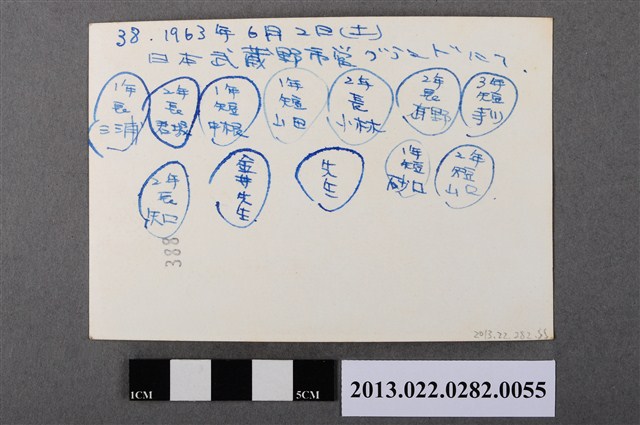 38. 1963年6月2日(土)
日本武蔵野市営グランドにて.
1年
長
三浦
2年
長
君塚
1年
短
中根
1年
短
山田
2年
長
小林
2年
長
野
3年
短
2年
長
矢口
金井先生
先生
1年
短
砂口
2年
短
山口
388
2013.22.282.55
1CM
5CM
2013.022.0282.0055